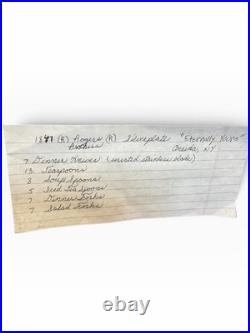 1847 (R) Rogers (R) Silverplate "Eternally Yours"
Brothers Oneida, NY
7 Dinner Knives (serrated stainless blade)
13 Teaspoons
8 Soup Spoons
5 Iced Tea Spoons
7 Dinner Forks
7 Salad Forks
thecrimsonrabbit.com